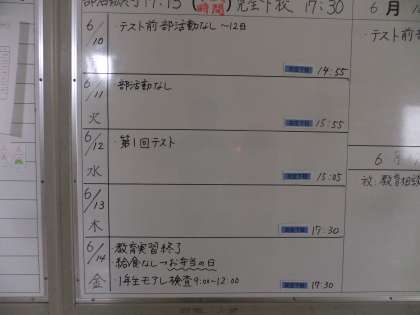 17:15 (時間) 完全下校 17:30
6/10
・テスト前部活動なし ～12日
14:55
6/11 火
部活動なし
15:55
6/12 水
・第1回テスト
15:05
6/13 木
17:30
6/14 金
・教育実習終了
・給食なし→お弁当の日
・1年生モアレ検査 9:00～12:00
17:30
6月
・テスト前
6
放:教育相談